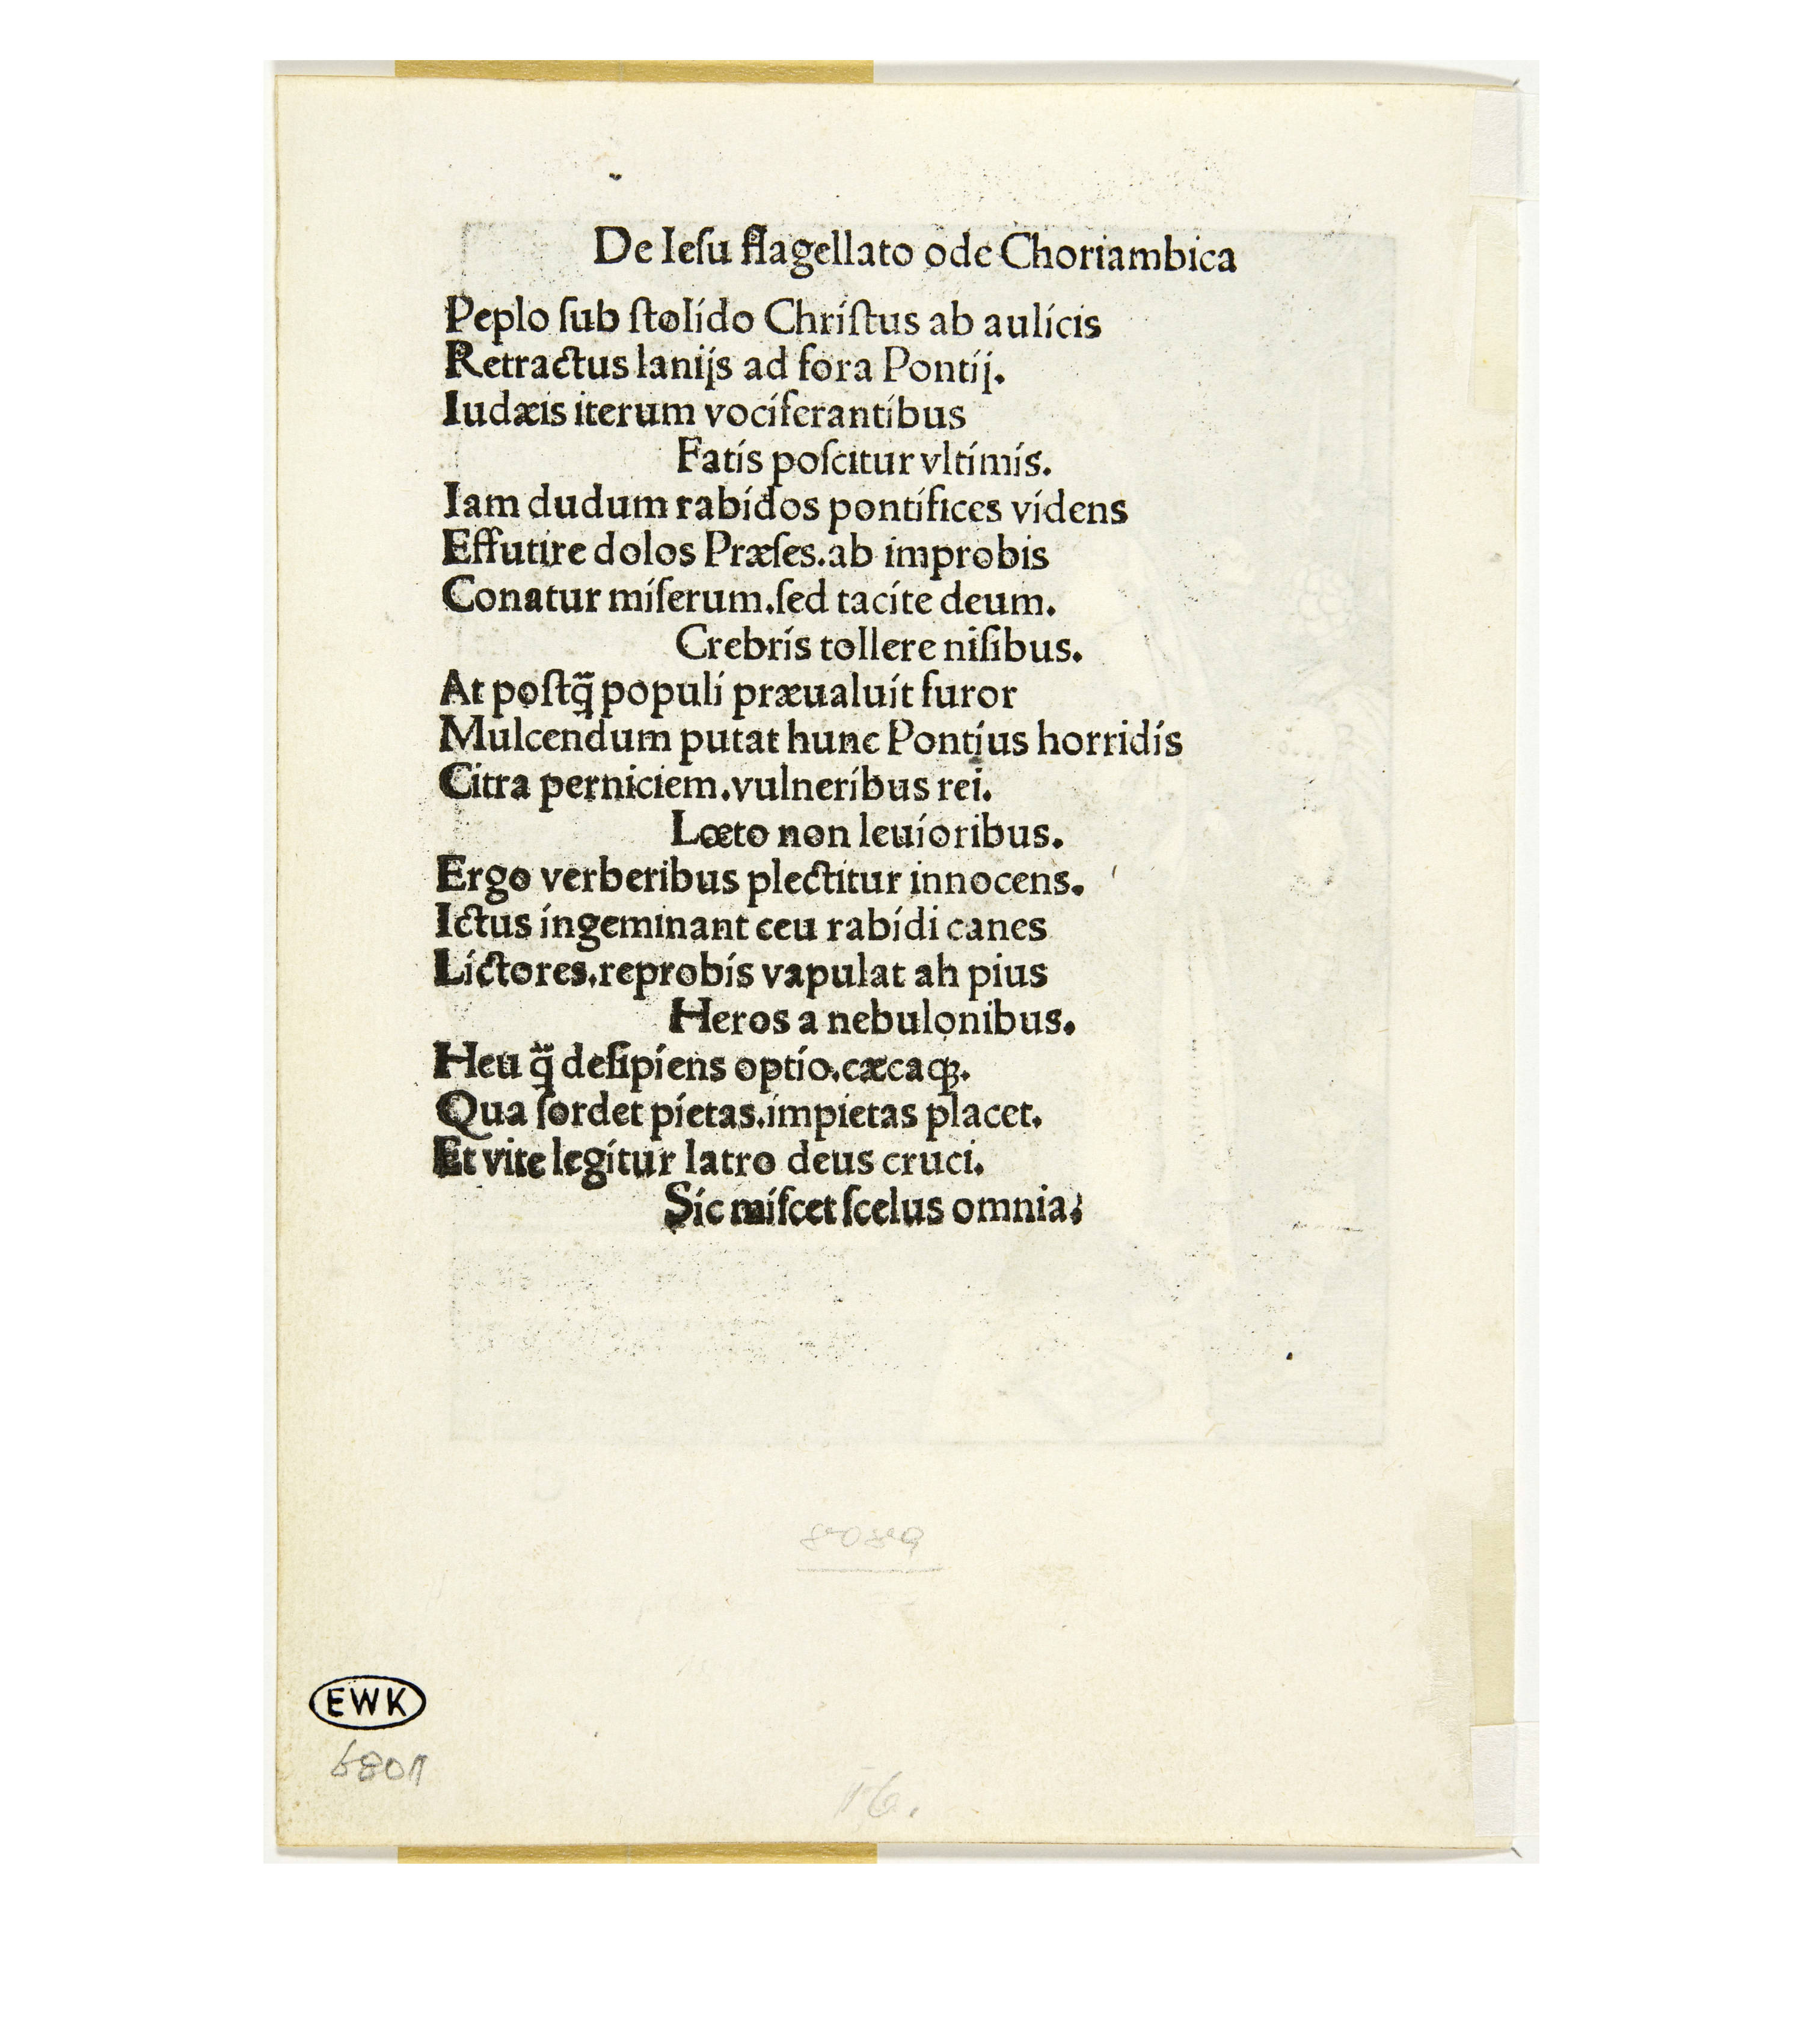 De Ieſu flagellato ode Choriambica
Peplo ſub ſtolido Chriſtus ab aulicis
Retractus lanijs ad fora Pontij.
Iudæis iterum vociferantibus
Fatis poſcitur vltimis.
Iam dudum rabidos pontifices videns
Effutire dolos Præſes.ab improbis
Conatur miſerum.ſed tacite deum.
Crebris tollere niſibus.
At poſtq̃ populi præualuit furor
Mulcendum putat hunc Pontius horridis
Citra perniciem.vulneribus rei.
Lœto non leuioribus.
Ergo verberibus plectitur innocens.
Ictus ingeminant ceu rabidi canes
Lictores.reprobis vapulat ah pius
Heros a nebulonibus.
Heu q̃ deſipiens optio.cæcaqꝫ.
Qua ſordet pietas.impietas placet.
Et vite legitur latro deus cruci.
Sic miſcet ſcelus omnia;
EWK